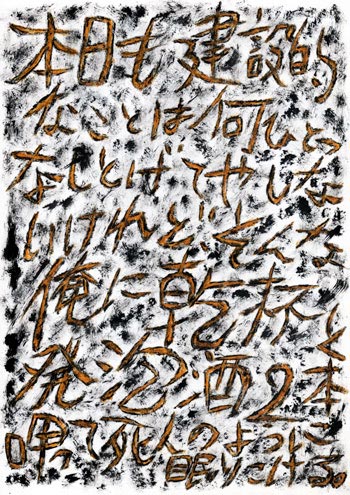 本日も建設的
なことは何ひとつ
なしとげてやしない
いけれどそんな
俺に乾杯
発泡酒2本
喰って死人のように眠りこける